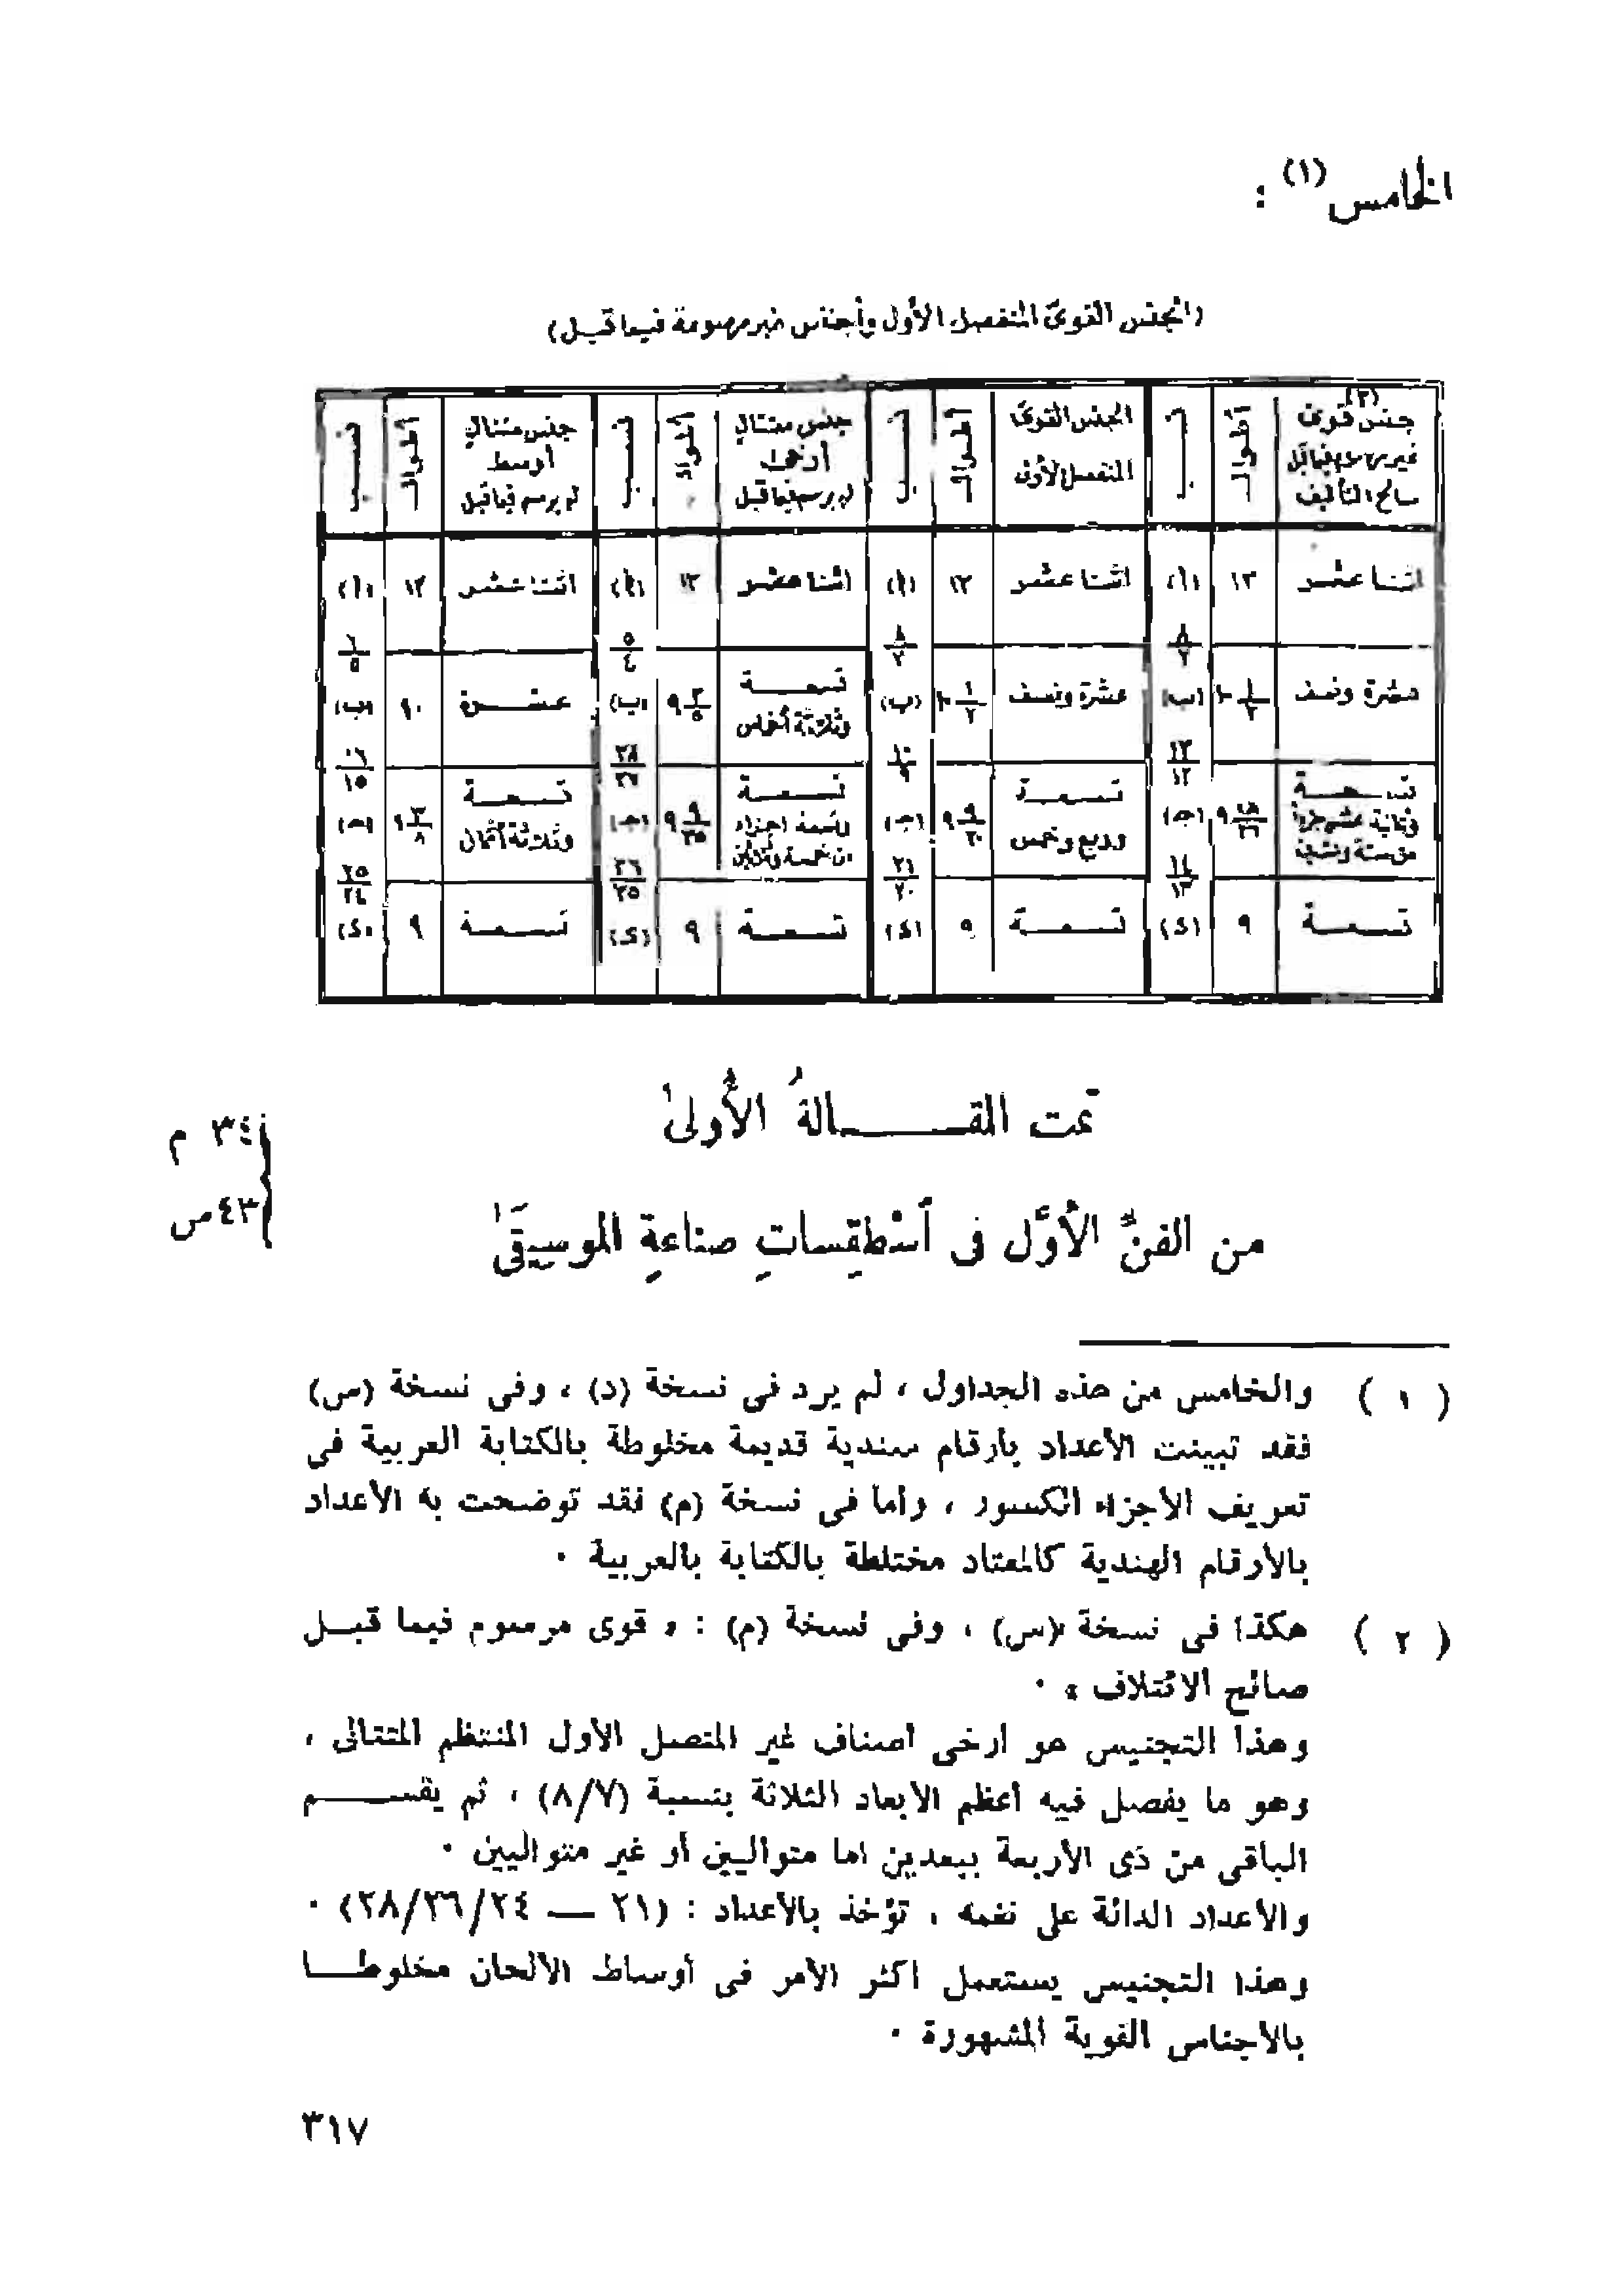 الخامس (١) :
(الجنس القوى المنفصل الأول وأجناس غير مرسومة فيما قبل)
(٢)
جنس قوى | أطوال | نسب | الجنس القوى | أطوال | نسب | جنس متتالي | أطوال | نسب | جنس متتالي | أطوال | نسب
غير مرسوم فيما قبل | المنفصل الأول | أرخى | أوسط
صالح التأليف | لم يرسم فيما قبل | لم يرسم فيما قبل
اثنا عشر | ١٢ | (أ) | اثنا عشر | ١٢ | (أ) | اثنا عشر | ١٢ | (أ) | اثنا عشر | ١٢ | (أ)
٨/٧ | ٨/٧ | ٥/٤ | ٦/٥
عشرة ونصف | ١٠ ١/٢ | (ب) | عشرة ونصف | ١٠ ١/٢ | (ب) | تسعة وثلاثة أخماس | ٩ ٣/٥ | (ب) | عشرة | ١٠ | (ب)
١٣/١٢ | ١٠/٩ | ٢٨/٢٧ | ١٦/١٥
تسعة وثمانية عشر جزءاً من ستة وعشرين | ٩ ١٨/٢٦ | (جـ) | تسعة وربع وخمس | ٩ ٩/٢٠ | (جـ) | تسعة وتسعة أجزاء من خمسة وثلاثين | ٩ ٩/٣٥ | (جـ) | تسعة وثلاثة أثمان | ٩ ٣/٨ | (جـ)
١٤/١٣ | ٢١/٢٠ | ٣٦/٣٥ | ٢٥/٢٤
تسعة | ٩ | (د) | تسعة | ٩ | (د) | تسعة | ٩ | (د) | تسعة | ٩ | (د)
تمت المقالةُ الأُولىٰ
٣٤ م
من الفنِّ الأوَّل فى أسْطِقِساتِ صناعةِ الموسيقَىٰ
٤٣ س
( ١ ) والخامس من هذه الجداول ، لم يرد فى نسخة (د) ، وفى نسخة (س)
فقد تبينت الأعداد بأرقام سندية قديمة مخلوطة بالكتابة العربية فى
تعريف الأجزاء الكسور ، وأما فى نسخة (م) فقد توضحت به الأعداد
بالأرقام الهندية كالمعتاد مختلطة بالكتابة بالعربية ·
( ٢ ) هكذا فى نسخة (س) ، وفى نسخة (م) : « قوى مرسوم فيما قبل
صالح الائتلاف » ·
وهذا التجنيس هو أرخى أصناف غير المتصل الأول المنتظم المتتالى ،
وهو ما يفصل فيه أعظم الأبعاد الثلاثة بنسبة (٨/٧) ، ثم يقسم
الباقى من ذى الأربعة ببعدين اما متواليين أو غير متواليين ·
والأعداد الدالة على نغمه ، تؤخذ بالأعداد : (٢١ — ٢٨/٢٦/٢٤) ·
وهذا التجنيس يستعمل أكثر الأمر فى أوساط الألحان مخلوطا
بالأجناس القوية المشهورة ·
٣١٧